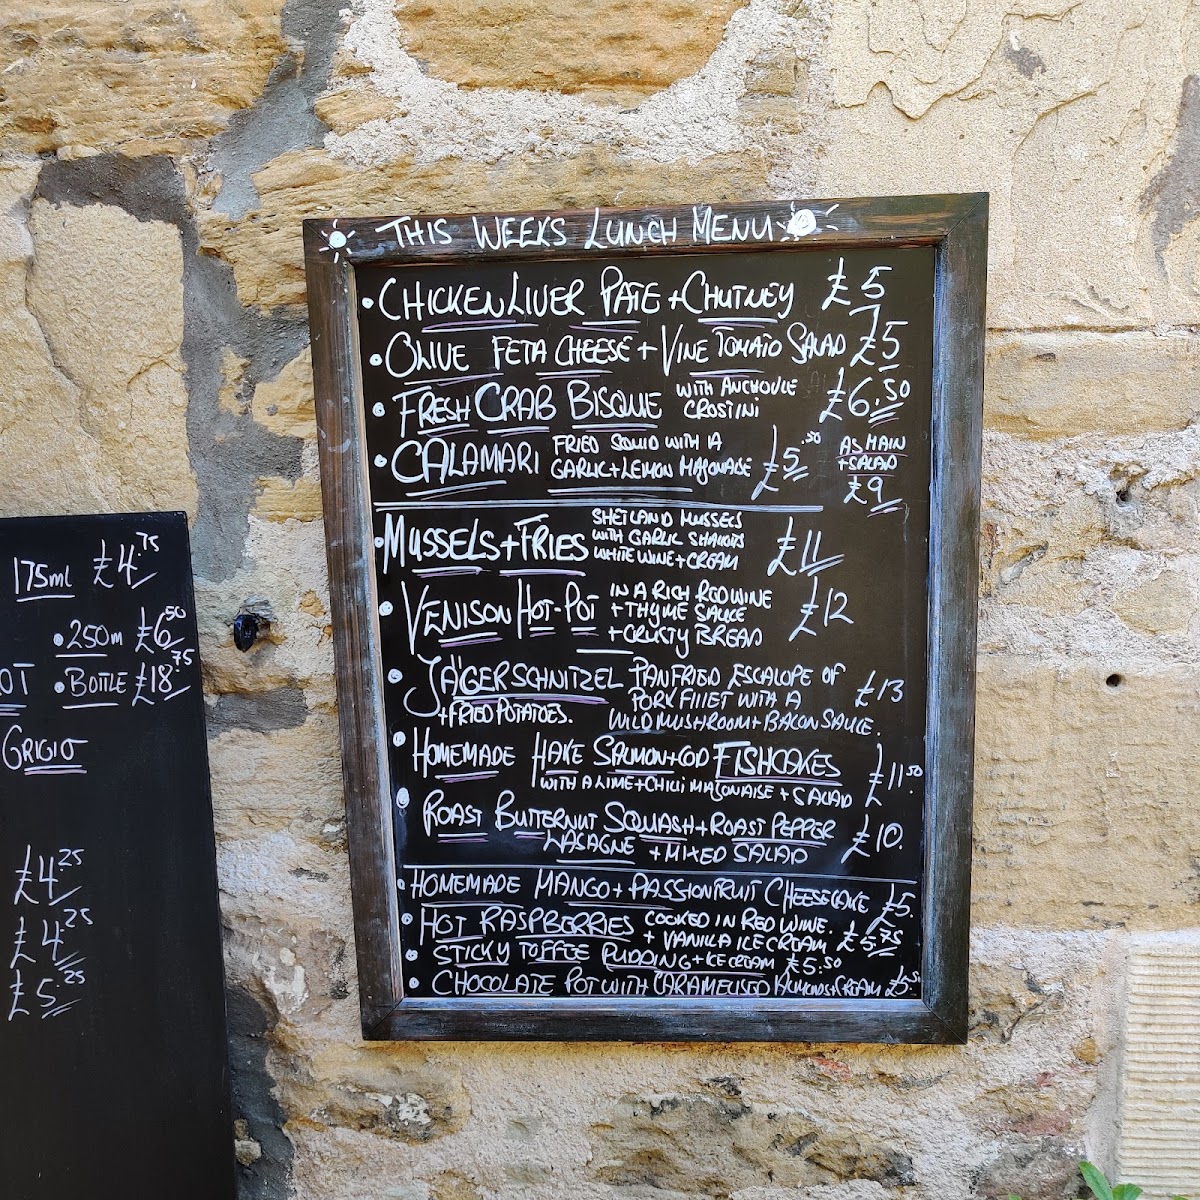 THIS WEEKS LUNCH MENU
• CHICKEN LIVER PATE + CHUTNEY £5
• OLIVE FETA CHEESE + VINE TOMATO SALAD £5
• FRESH CRAB BISQUE WITH ANCHOVIE CROSTINI £6.50
• CALAMARI FRIED SQUID WITH A
GARLIC + LEMON MAJONAISE £5.50 AS MAIN
+ SALAD
£9
• MUSSELS + FRIES SHETLAND MUSSELS
WITH GARLIC SHALLOTS
WHITE WINE + CREAM £11
• VENISON HOT-POT IN A RICH RED WINE
+ THYME SAUCE
+ CRUSTY BREAD £12
• JÄGERSCHNITZEL PANFRIED ESCALOPE OF
PORK FILLET WITH A £13
+ FRIED POTATOES. WILD MUSHROOM + BACON SAUCE.
• HOMEMADE HAKE SALMON + COD FISHCAKES
WITH A LIME + CHILLI MAJONAISE + SALAD £11.50
• ROAST BUTTERNUT SQUASH + ROAST PEPPER
LASAGNE + MIXED SALAD £10.
• HOMEMADE MANGO + PASSIONFRUIT CHEESECAKE £5.
• HOT RASPBERRIES COOKED IN RED WINE.
+ VANILLA ICE CREAM £5.75
• STICKY TOFFEE PUDDING + ICE CREAM £5.50
• CHOCOLATE POT WITH CARAMELISED ALMONDS + CREAM £5.50
175ml £4.75
• 250m £6.50
OT • BOTTLE £18.75
GRIGIO
£4.25
£4.25
£5.25